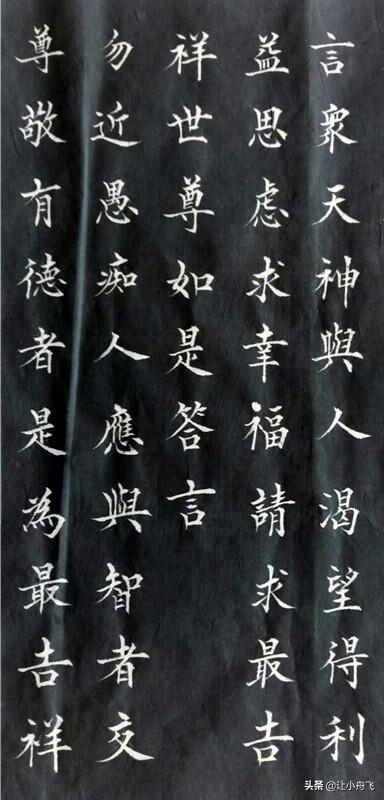 言眾天神與人渴望得利
益思慮求幸福請求最吉
祥世尊如是答言
勿近愚痴人應與智者交
尊敬有德者是為最吉祥
头条@让小舟飞